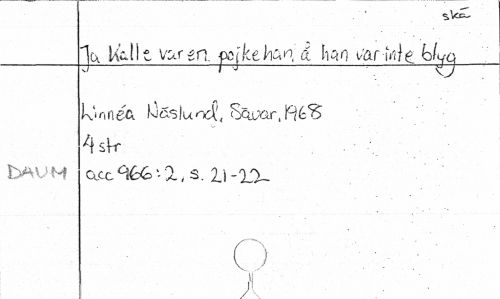 skä
Ja Kalle var en pojke han å han var inte blyg
Linnéa Näslund, Sävar, 1968
4 str
DAUM acc 966:2, s. 21-22